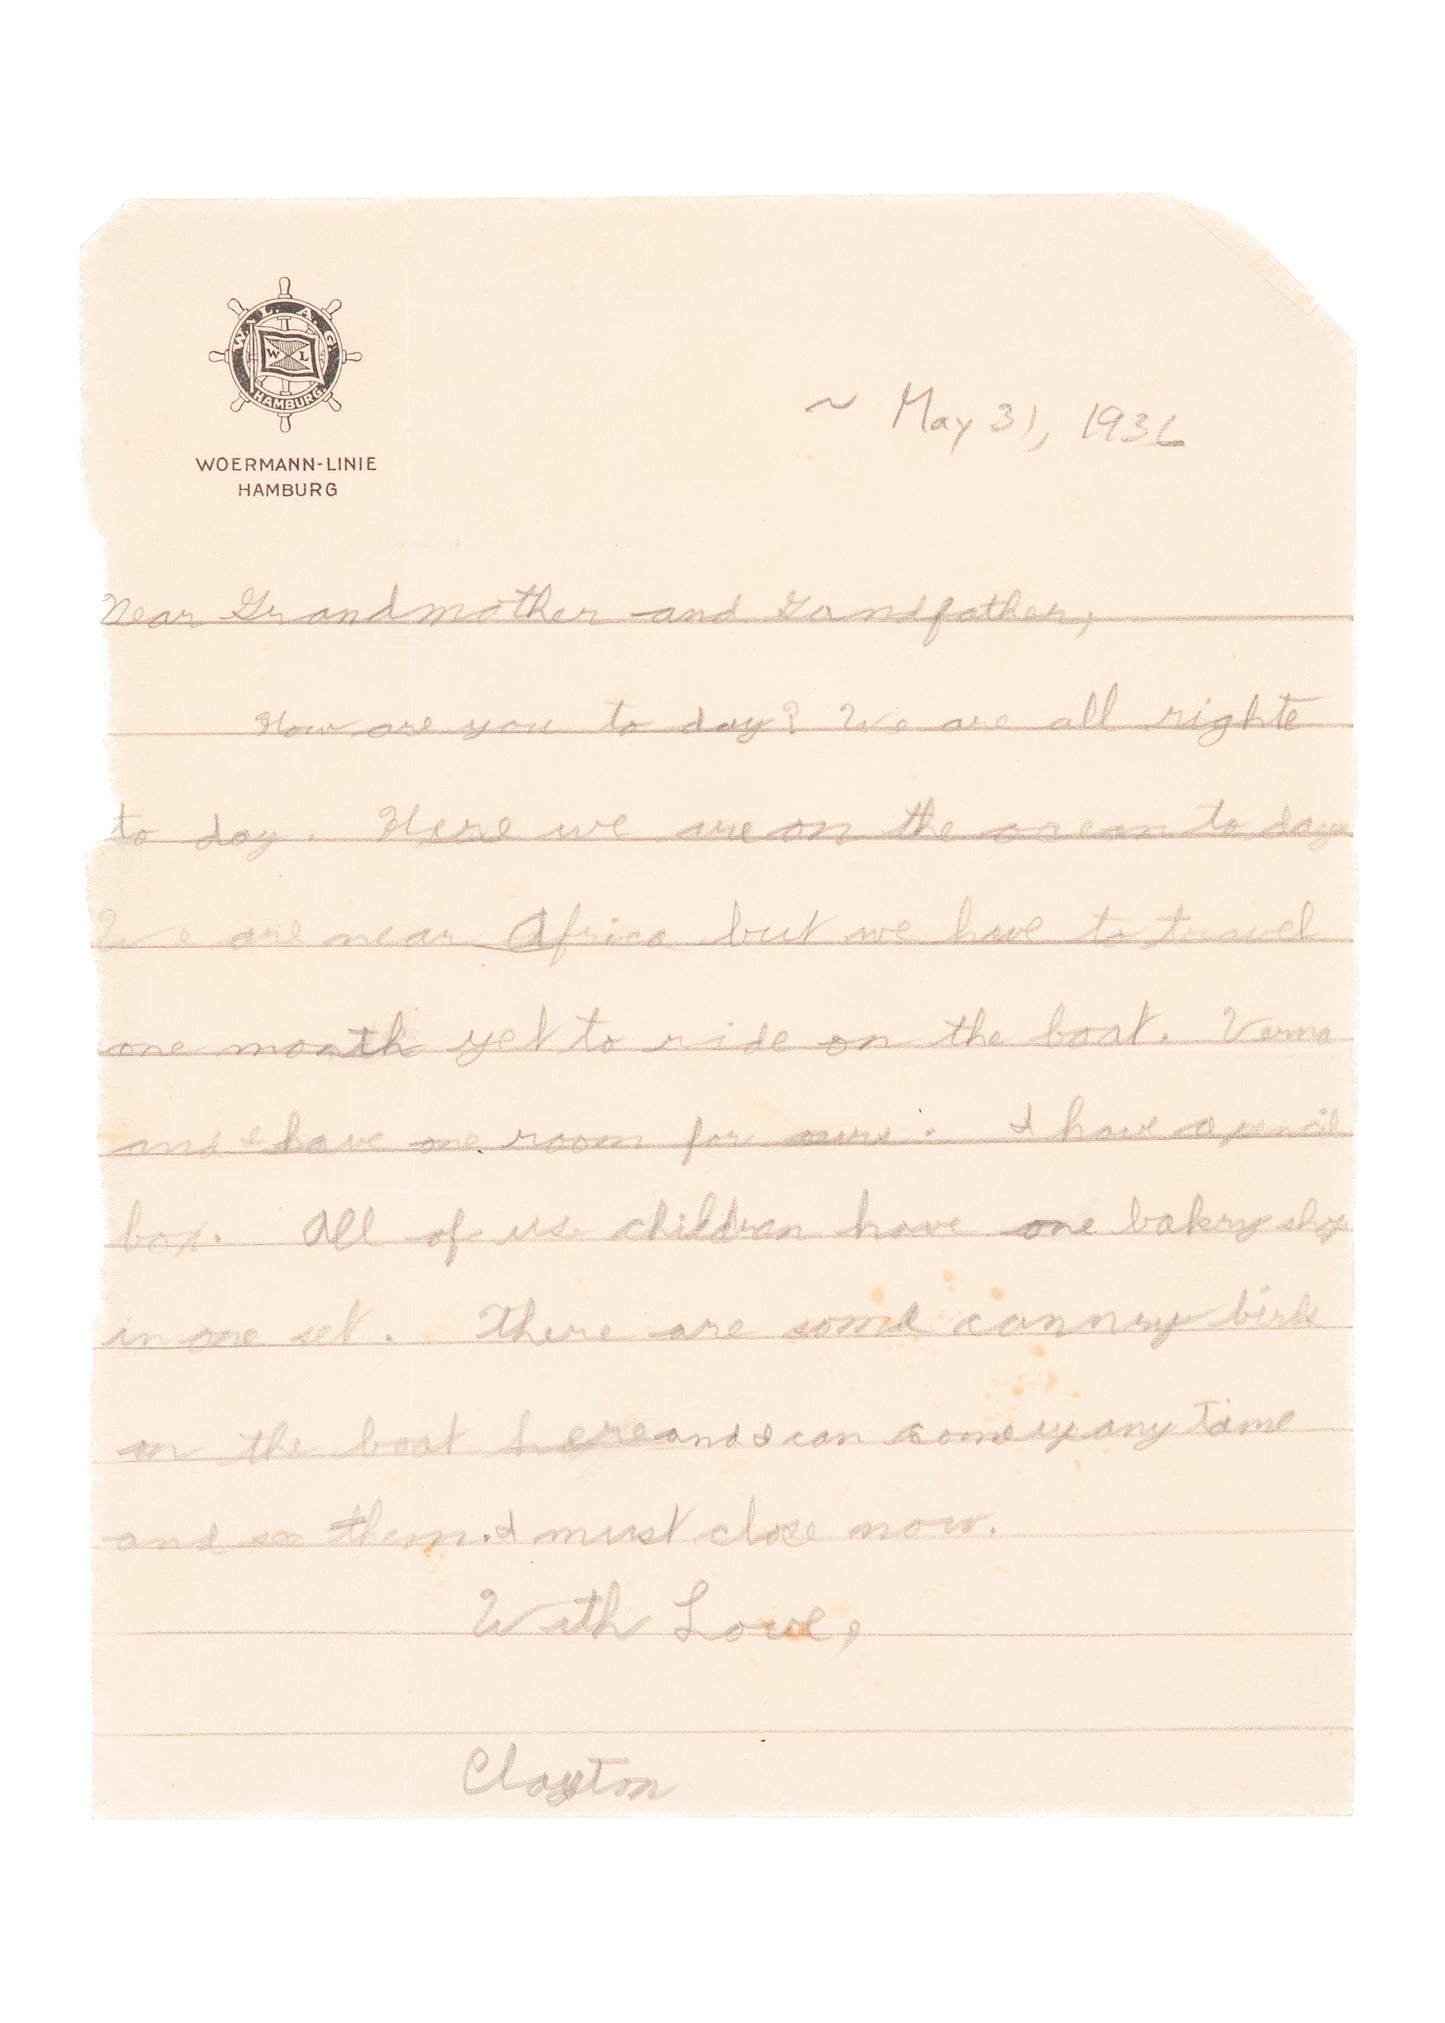 W. L. A. G.
W L
HAMBURG.
WOERMANN-LINIE
HAMBURG
~ May 31, 1936
Dear Grandmother and Gandfather,
How are you to day? We are all righte
to day. Here we are on the ocean to day
We are near Africa but we have to travel
one month yet to ride on the boat. Verna
and I have one room for ours. I have a pencil
box. All of us children have one bakry shop
in one set. There are some cannry birds
on the boat here and I can come up any time
and see them. I must close now.
With Love,
Clayton